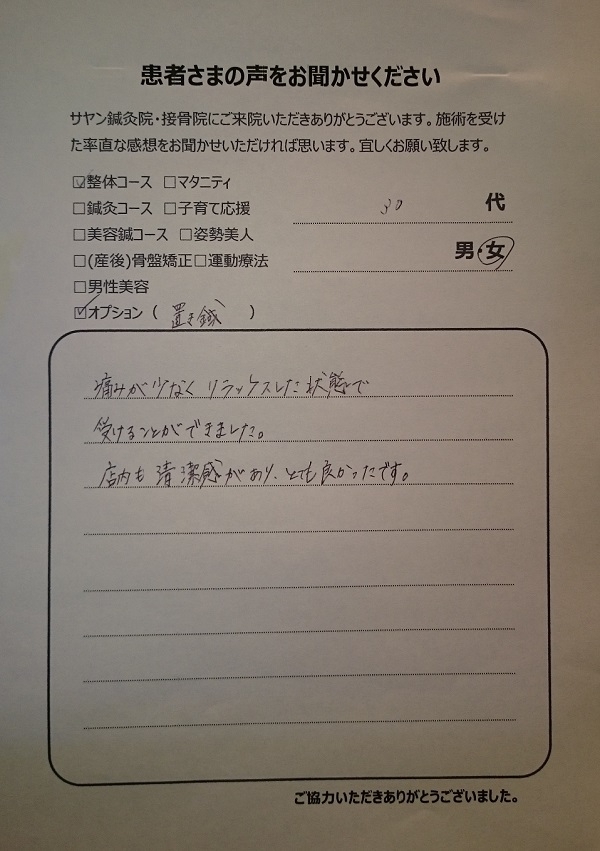 患者さまの声をお聞かせください
サヤン鍼灸院・接骨院にご来院いただきありがとうございます。施術を受け
た率直な感想をお聞かせいただければ思います。宜しくお願い致します。
☑整体コース □マタニティ
□鍼灸コース □子育て応援
30 代
□美容鍼コース □姿勢美人
男・女
□(産後)骨盤矯正□運動療法
□男性美容
☑オプション ( 置き鍼 )
痛みが少なく リラックスした状態で
受けることができました。
店内も清潔感があり、とても良かったです。
ご協力いただきありがとうございました。